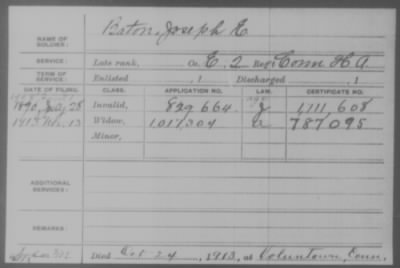 NAME OF SOLDIER: Baton, Joseph E
SERVICE: Late rank, Co. E, 2 Reg't Conn H A
TERM OF SERVICE: Enlisted , 1 Discharged , 1
DATE OF FILING. CLASS. APPLICATION NO. LAW. CERTIFICATE NO.
1890, July 28 Invalid, 829 664 J 1,111,608
1913 Nov. 13 Widow, 1,017,304 787095
Minor,
ADDITIONAL SERVICES:
REMARKS:
Died Oct 24, 1913, at Voluntown, Conn.